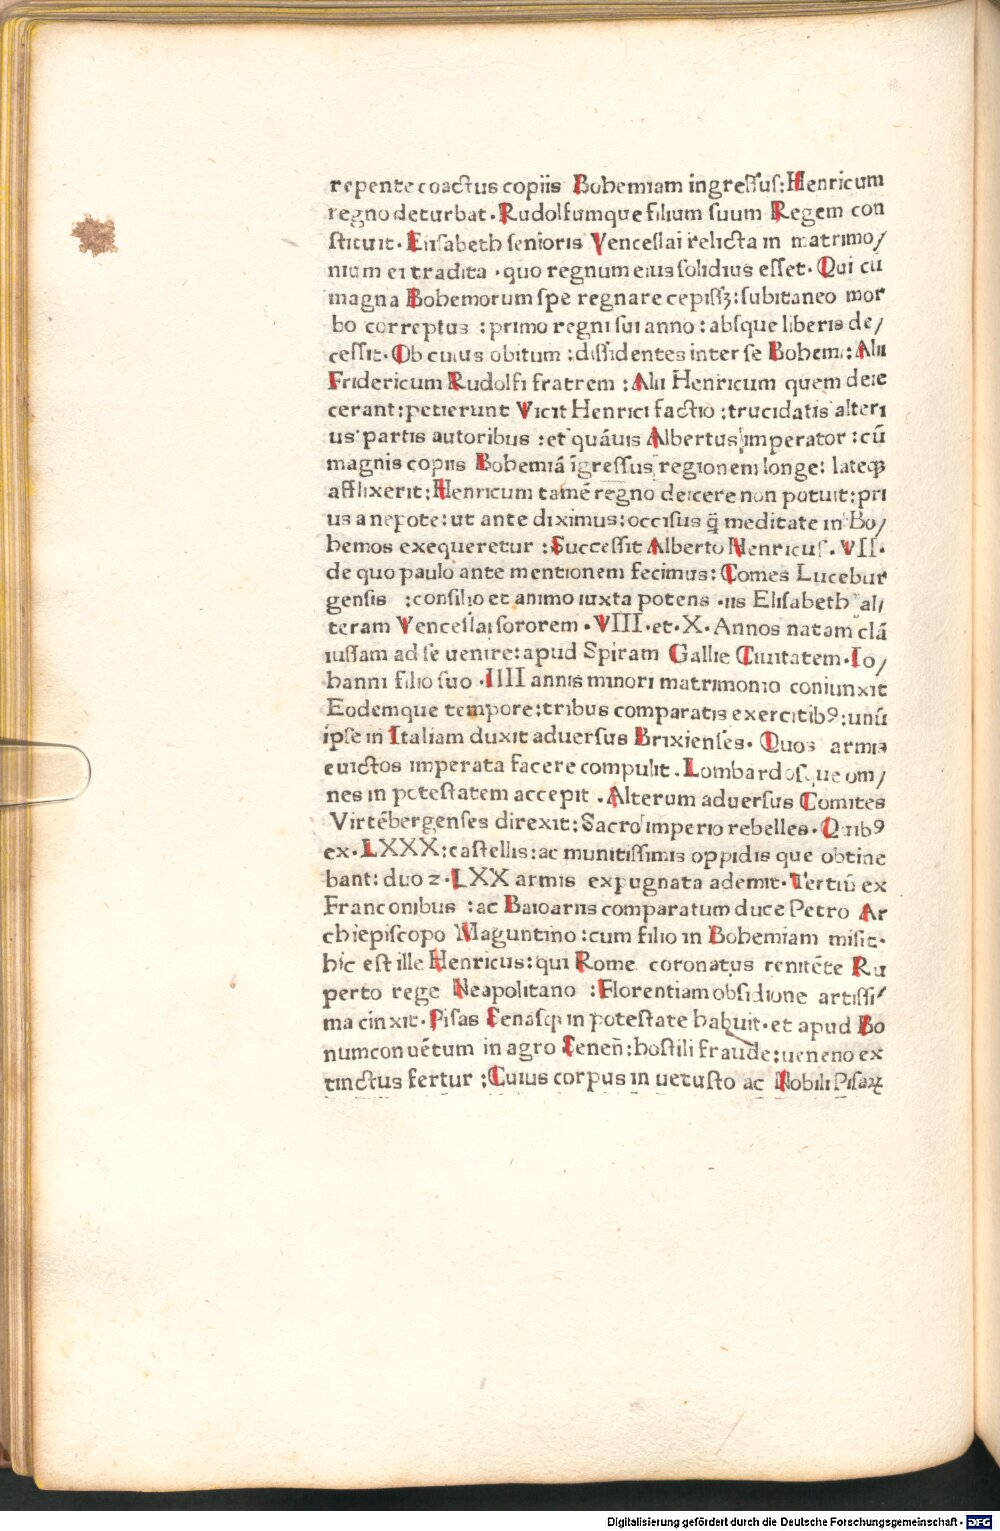 repente coactus copiis Bohemiam ingressus: Henricum
regno deturbat. Rudolfumque filium suum Regem con
stituit. Elisabeth senioris Venceslai relicta in matrimo/
nium ei tradita . quo regnum eius solidius esset. Qui cū
magna Bohemorum spe regnare cepissꝫ: subitaneo mor
bo correptus : primo regni sui anno : absque liberis de/
cessit. Ob cuius obitum : dissidentes inter se Bohemi: Alii
Fridericum Rudolfi fratrem : Alii Henricum quem deie
cerant: petierunt Vicit Henrici factio : trucidatis alteri
us partis autoribus : et quāuis Albertus imperator : cū
magnis copiis Bohemiā īgressus regionem longe: lateqꝫ
afflixerit: Henricum tamē regno deicere non potuit: pri
us a nepote: ut ante diximus: occisus q̄ meditate in Bo/
hemos exequeretur : Successit Alberto Henricus. VII.
de quo paulo ante mentionem fecimus: Comes Lucebur
gensis : consilio et animo iuxta potens . iis Elisabeth al/
teram Venceslai sororem . VIII. et. X. Annos natam clā
iussam ad se uenire: apud Spiram Gallie Ciuitatem. Io/
hanni filio suo . IIII annis minori matrimonio coniunxit
Eodemque tempore: tribus comparatis exercitibꝰ: unū
ipse in Italiam duxit aduersus Brixienses. Quos armis
euictos imperata facere compulit . Lombardosque om/
nes in potestatem accepit . Alterum aduersus Comites
Virtēbergenses direxit: Sacro imperio rebelles. Quibꝰ
ex. LXXX: castellis: ac munitissimis oppidis que obtine
bant: duo 2. LXX armis expugnata ademit. Tertiū ex
Franconibus : ac Baioariis comparatum duce Petro Ar
chiepiscopo Maguntino : cum filio in Bohemiam misit.
hic est ille Henricus: qui Rome coronatus renitēte Ru
perto rege Neapolitano : Florentiam obsidione artissi/
ma cinxit. Pisas Senasqꝫ in potestate habuit. et apud Bo
numconuētum in agro Senen̄: hostili fraude: ueneno ex
tinctus fertur : Cuius corpus in uetusto ac Nobili Pisaꝝ
Digitalisierung gefördert durch die Deutsche Forschungsgemeinschaft - DFG